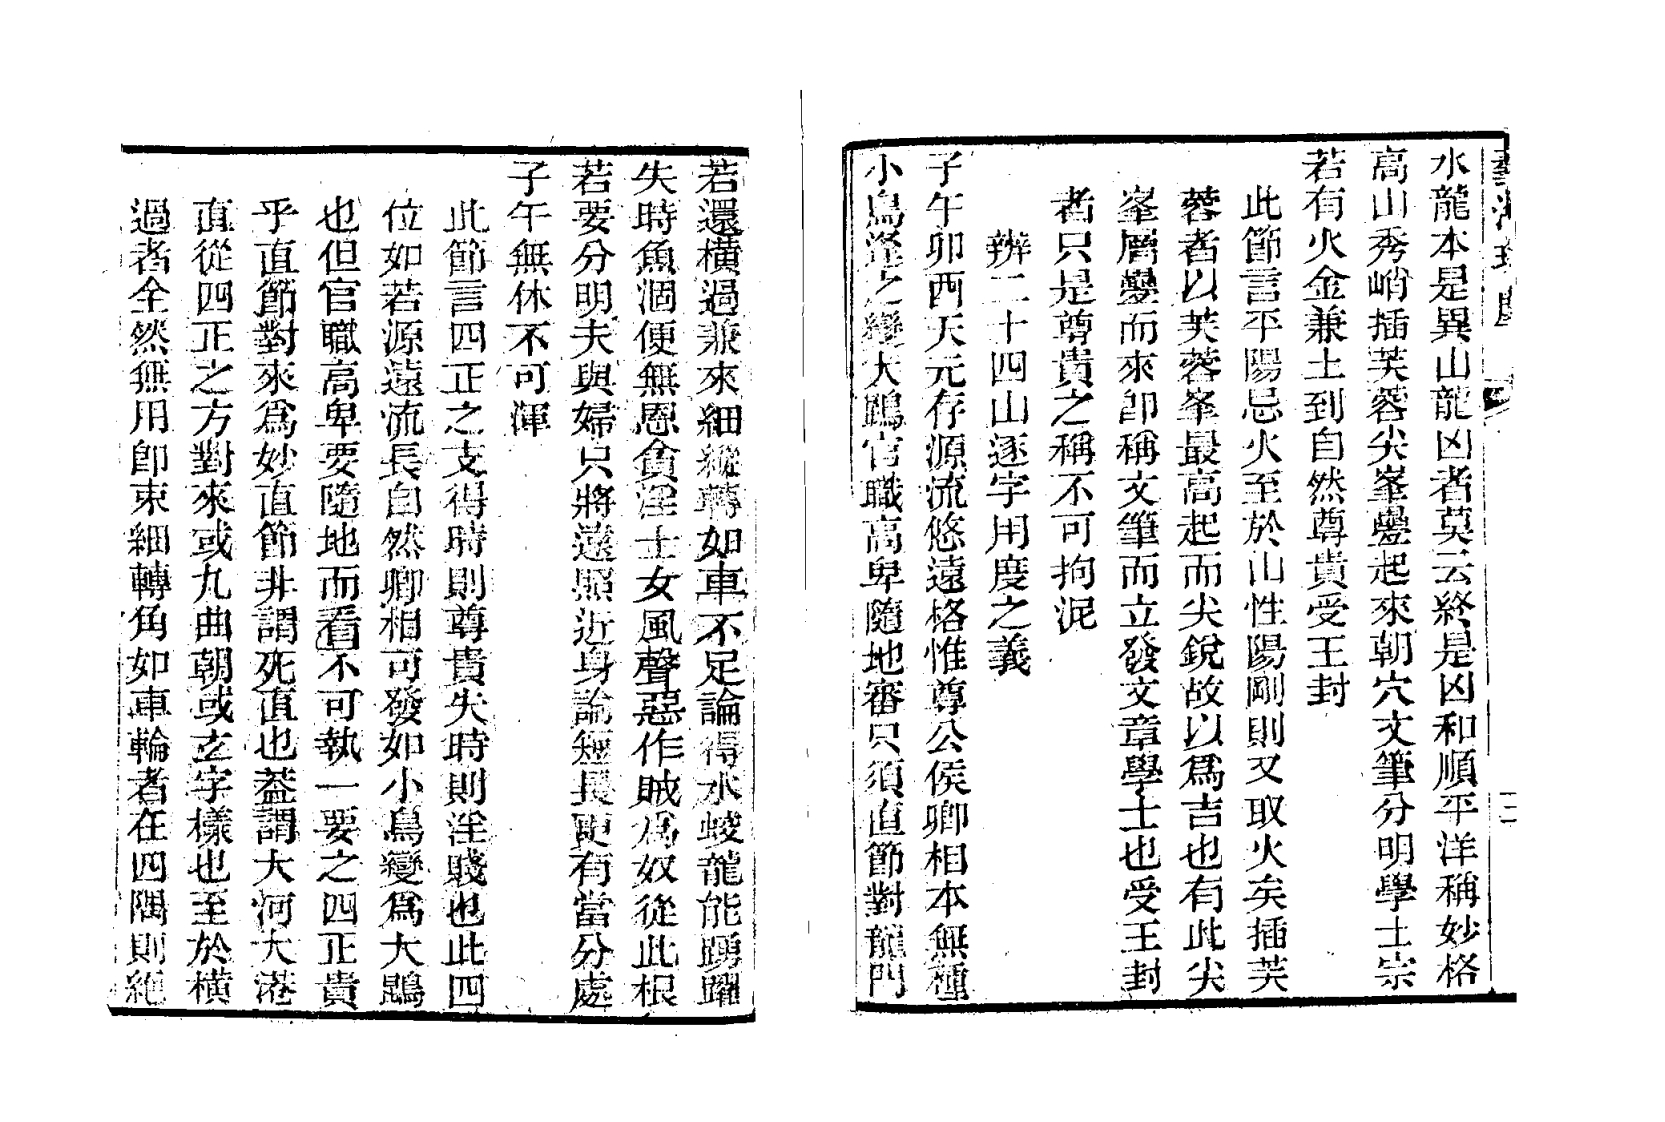 水龍本是異山龍凶者莫云終是凶和順平洋稱妙格
高山秀峭插芙蓉尖峯疊起來朝穴文筆分明學士宗
若有火金兼土到自然尊貴受王封
此節言平陽忌火至於山性陽剛則又取火矣插芙
蓉者以芙蓉峯最高起而尖銳故以爲吉也有此尖
峯層疊而來卽稱文筆而立發文章學士也受王封
者只是尊貴之稱不可拘泥
辨二十四山逐字用度之義
子午卯酉天元存源流悠遠格惟尊公侯卿相本無種
小鳥逢之變大鵾官職高卑隨地審只須直節對龍門
若還橫過兼來細縱轉如車不足論得水蛟龍能踴躍
失時魚涸便無恩貪淫士女風聲惡作賊爲奴從此根
若要分明夫與婦只將遠照近身論短長更有當分處
子午無休不可渾
此節言四正之支得時則尊貴失時則淫賤也此四
位如若源遠流長自然卿相可發如小鳥變爲大鵾
也但官職高卑要隨地而看不可執一要之四正貴
乎直節對來爲妙直節非謂死直也葢謂大河大港
直從四正之方對來或九曲朝或玄字樣也至於橫
過者全然無用卽束細轉角如車輪者在四隅則絕